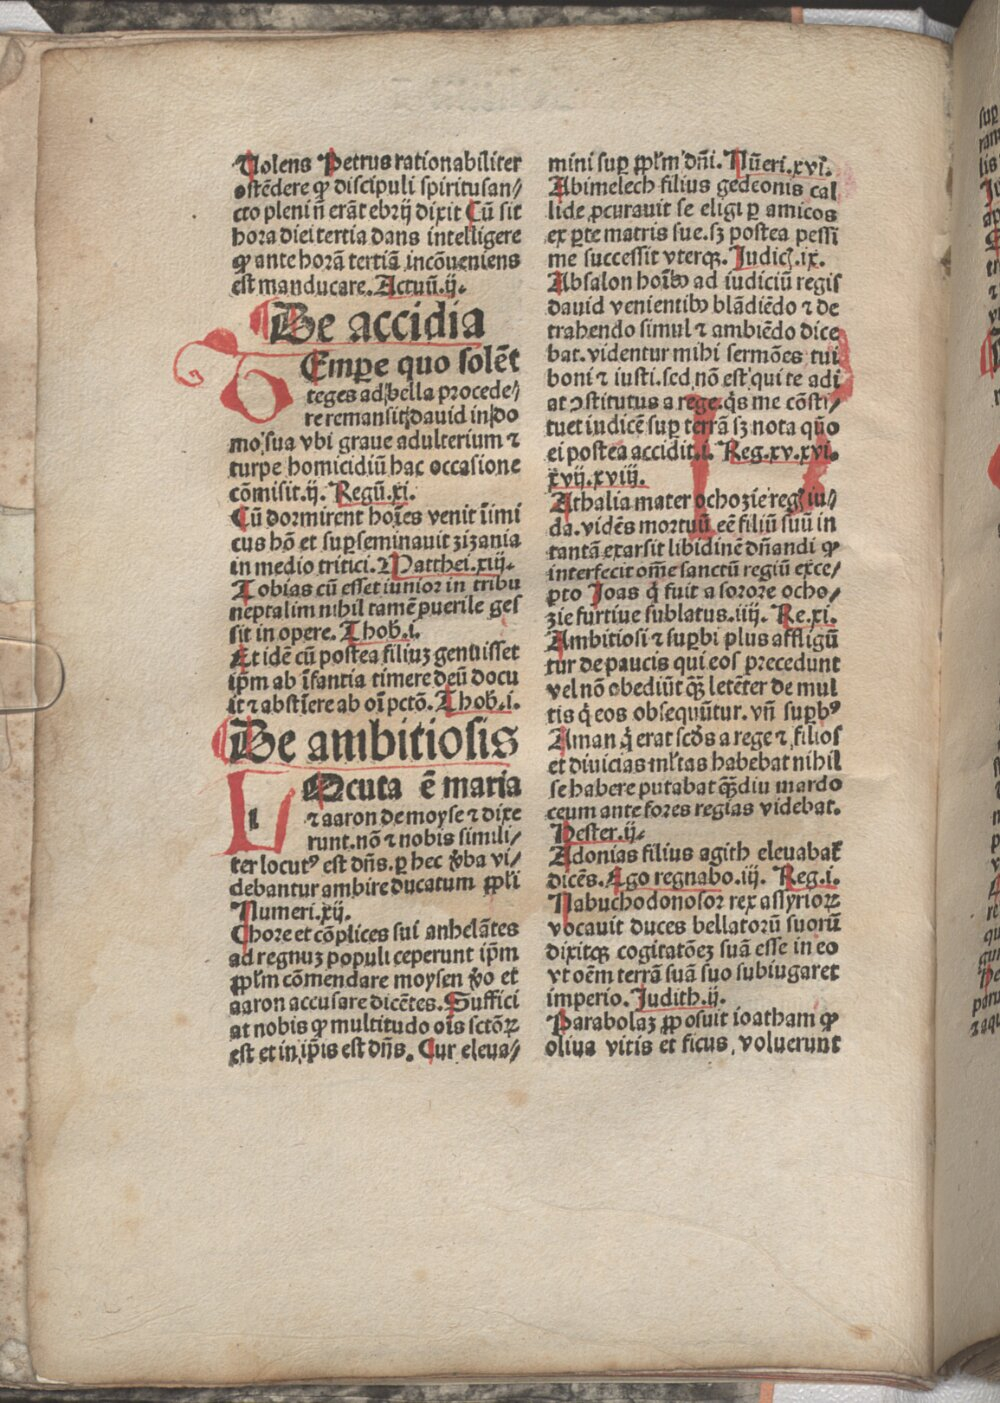 Volens Petrus rationabiliter
ostēdere ꝙ discipuli spiritusan/
cto pleni n̄ erāt ebrij dixit Cū sit
hora diei tertia dans intelligere
ꝙ ante horā tertiā incōueniens
est manducare. Actuū.ij.
De accidia
Tempꝑe quo solēt
reges ad bella procede/
re remansit dauid in do
mo sua vbi graue adulterium ⁊
turpe homicidiū hac occasione
cōmisit.ij. Regū.xi.
Cū dormirent hoīes venit īimi
cus hō et suꝑseminauit zizania
in medio tritici. Matthei.xiij.
Tobias cū esset iunior in tribu
neptalim nihil tamē puerile ges
sit in opere. Thob.i.
Et idē cū postea filiuꝫ genuisset
ipm̄ ab īfantia timere deū docu
it ⁊ abstīere ab oī pctō. Thob.i.
De ambitiosis
LOcuta ē maria
⁊ aaron de moyse ⁊ dixe
runt. nō ⁊ nobis simili/
ter locutꝰ est dn̄s. ꝑ hec v̄ba vi/
debantur ambire ducatum ppl̄i
Numeri.xij.
Chore et cōplices sui anhelātes
ad regnuꝫ populi ceperunt ip̄m
ppl̄m cōmendare moysen v̄o et
aaron accusare dicētes. Suffici
at nobis ꝙ multitudo oīs sctōꝝ
est et in ip̄is est dn̄s. Cur eleua/
mini suꝑ ppl̄m dn̄i. Nūeri.xvi.
Abimelech filius gedeonis cal
lide ꝓcurauit se eligi ꝑ amicos
ex ꝑte matris sue. sꝫ postea pessi
me successit vterqꝫ. Judic̄.ix.
Absalon hoībꝰ ad iudiciū regis
dauid venientibꝰ blādiēdo ⁊ de
trahendo simul ⁊ ambiēdo dice
bat. videntur mihi sermōes tui
boni ⁊ iusti. sed nō est qui te adi
at ↄstitutus a rege. q̄s me cōsti/
tuet iudicē suꝑ terrā sꝫ nota quō
ei postea accidit.i. Reg.xv.xvi.
xvij.xviij.
Athalia mater ochozie reḡ iu/
da. vidēs mortuū eē filiū suū in
tantā exarsit libidinē dn̄andi ꝙ
interfecit om̄e sanctū regiū exce/
pto Joas q̄ fuit a sorore ocho/
zie furtiue sublatus.iiij. Re.xi.
Ambitiosi ⁊ suꝑbi plus affligū
tur de paucis qui eos precedunt
vel nō obediūt qꝫ̄ letēter de mul
tis q̄ eos obsequūtur. vn̄ suꝑbꝰ
Aman q̄ erat scd̄s a rege ⁊ filios
et diuicias ml̄tas habebat nihil
se habere putabat qꝫ̄diu mardo
ceum ante fores regias videbat.
Hester.ij.
Adonias filius agith eleuabat̄
dicēs. Ego regnabo.iij. Reg.i.
Nabuchodonosor rex assyrioꝝ
vocauit duces bellatorū suorū
dixitqꝫ cogitatōeꝫ suā esse in eo
vt oēm terrā suā suo subiugaret
imperio. Judith.ij.
Parabolaꝫ ꝓposuit ioatham ꝙ
oliua vitis et ficus, voluerunt